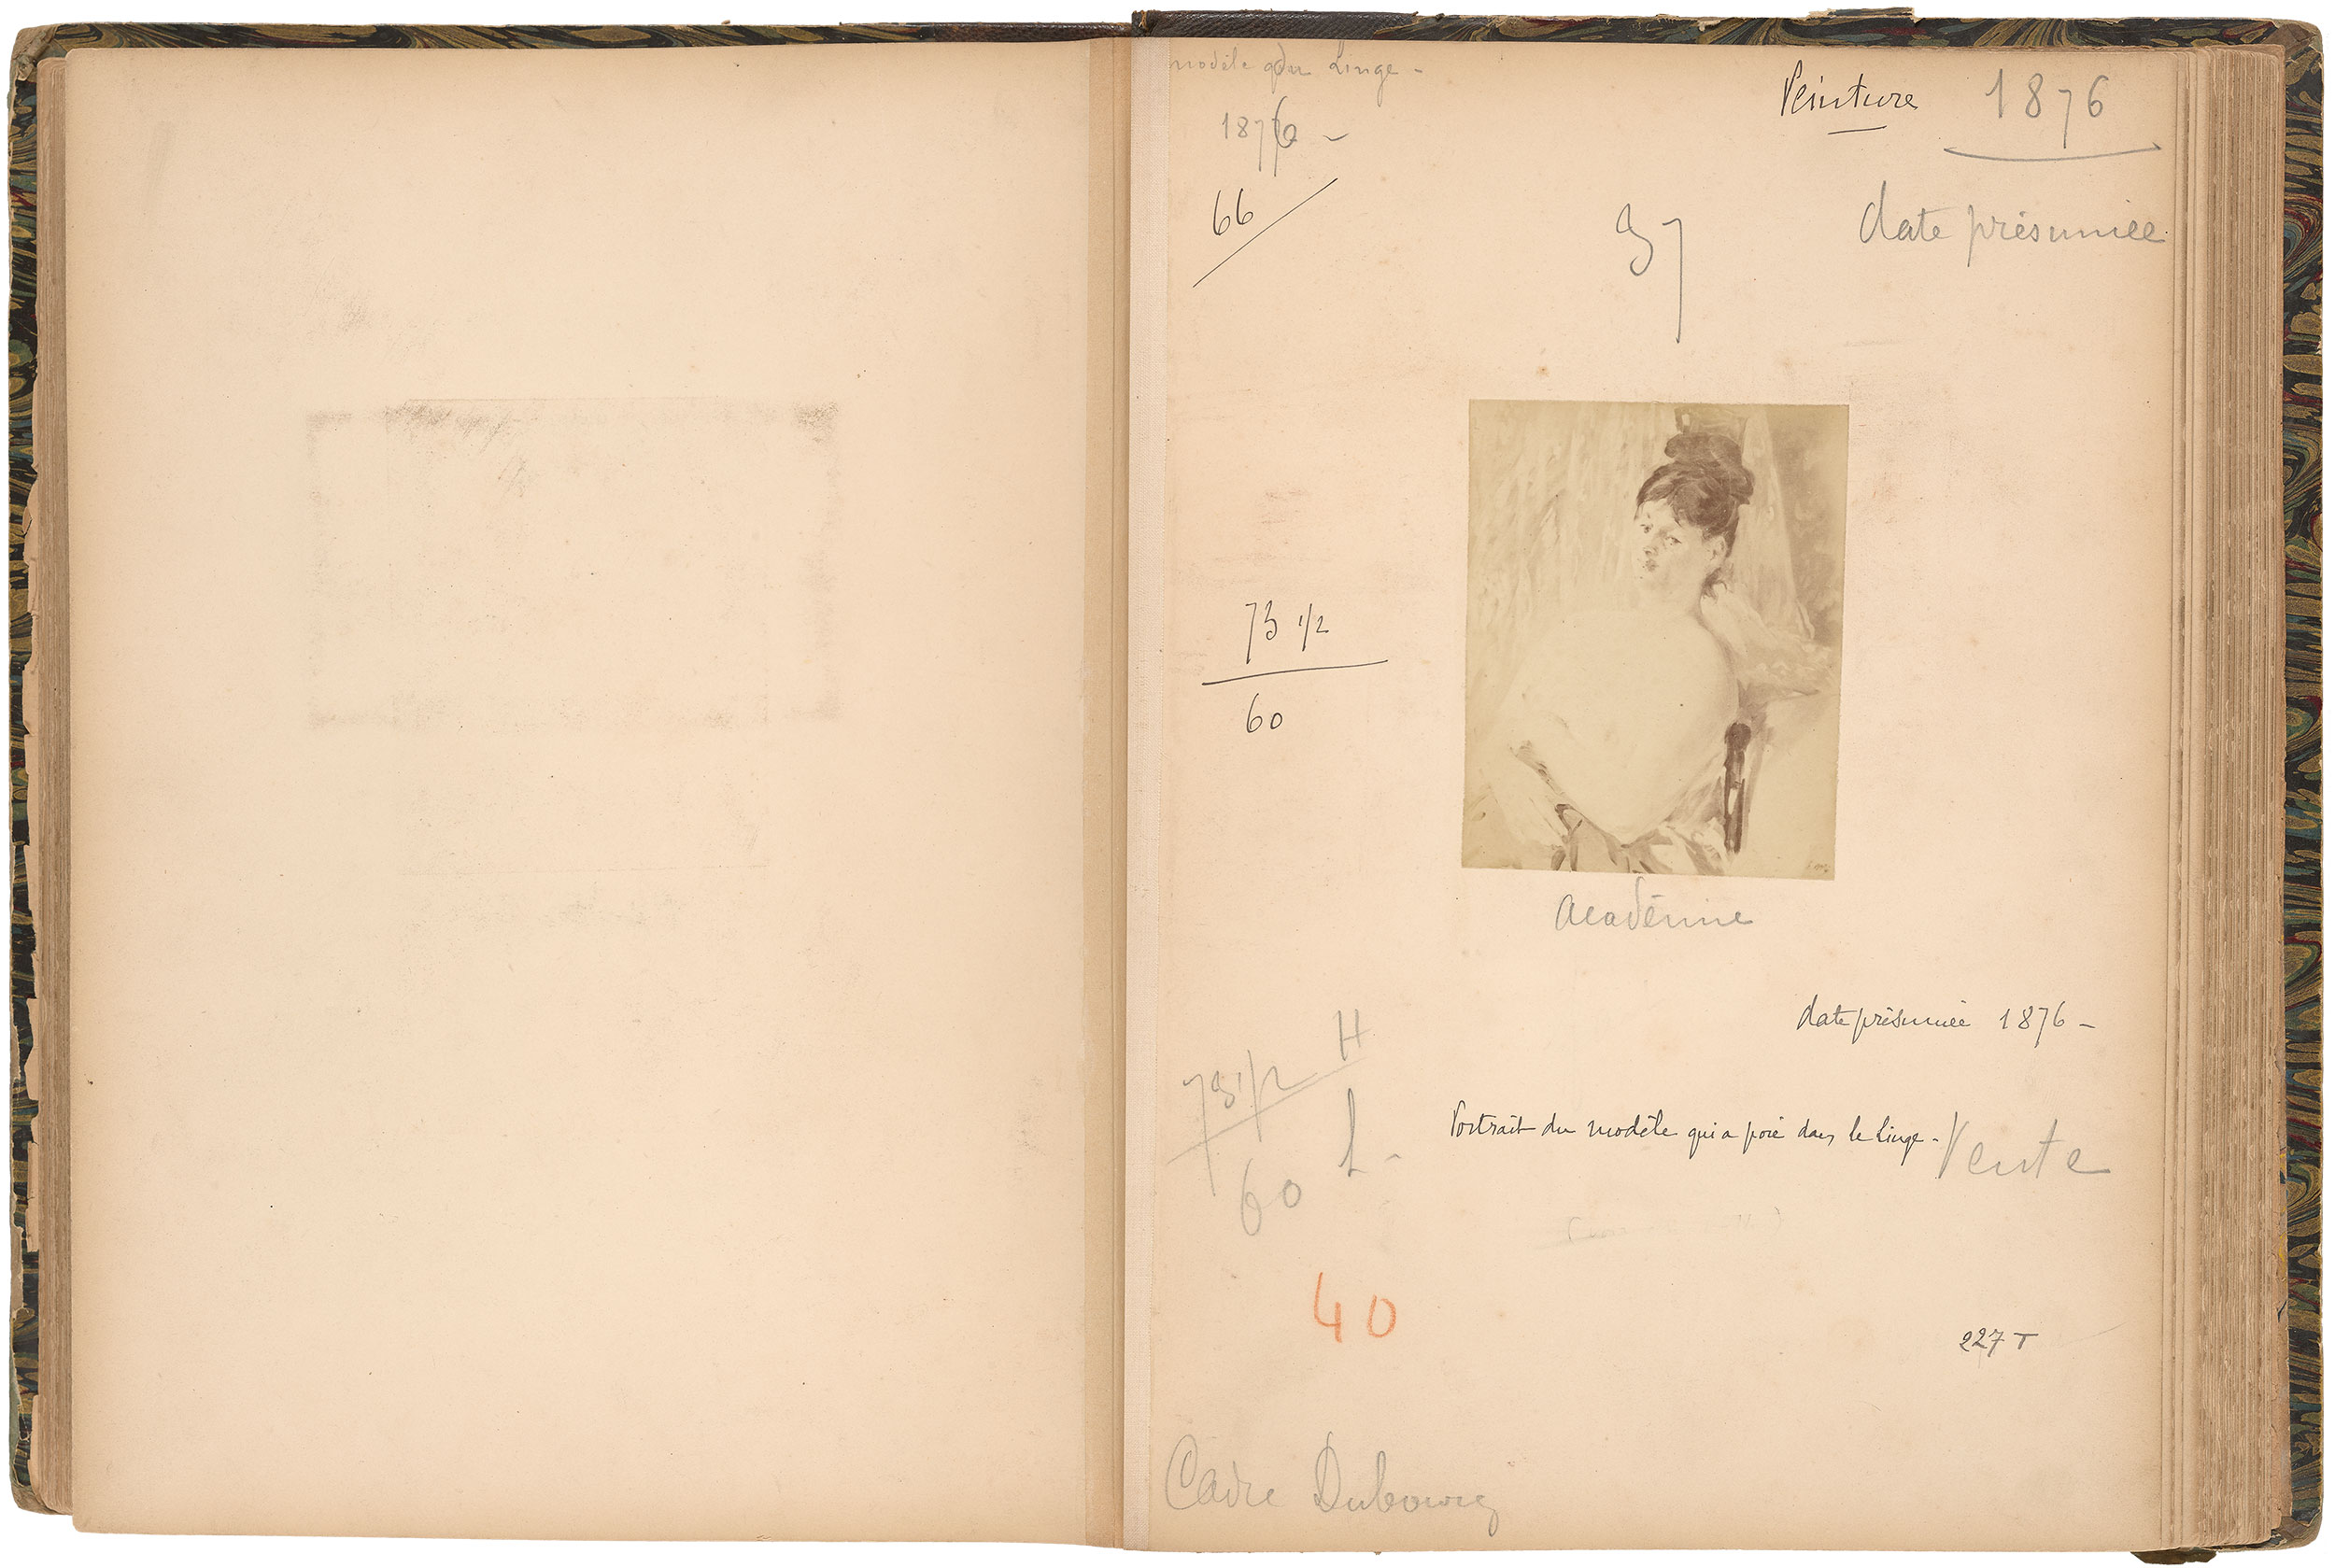 modèle du Linge -
1876 -
Peinture 1876
66
37
date présumée
73 1/2
60
Académie
date présumée 1876 -
73 1/2 H
60 L -
Portrait du modèle qui a posé dans le Linge - Vente
40
227 T
Cadre Dubourg